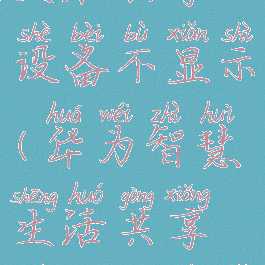 shè bèi bù xiǎn shì
设备不显示
huá wéi zhì huì
(华为智慧
shēng huó gòng xiǎng
生活共享